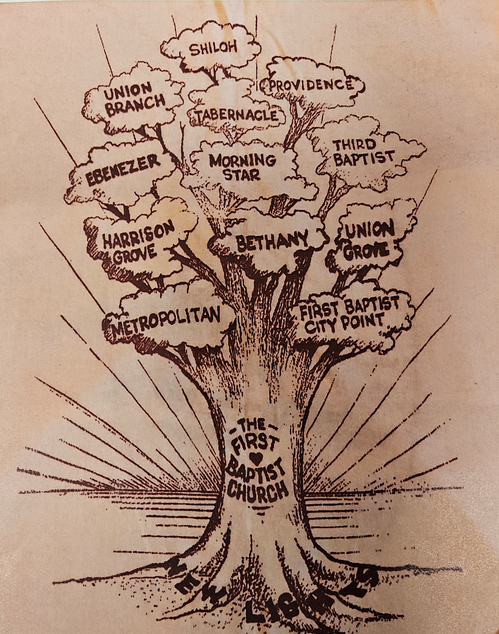 SHILOH
UNION
BRANCH
PROVIDENCE
TABERNACLE
EBENEZER
MORNING
STAR
THIRD
BAPTIST
HARRISON
GROVE
BETHANY
UNION
GROVE
METROPOLITAN
FIRST BAPTIST
CITY POINT
-THE-
FIRST
BAPTIST
CHURCH
NEW LIGHTS